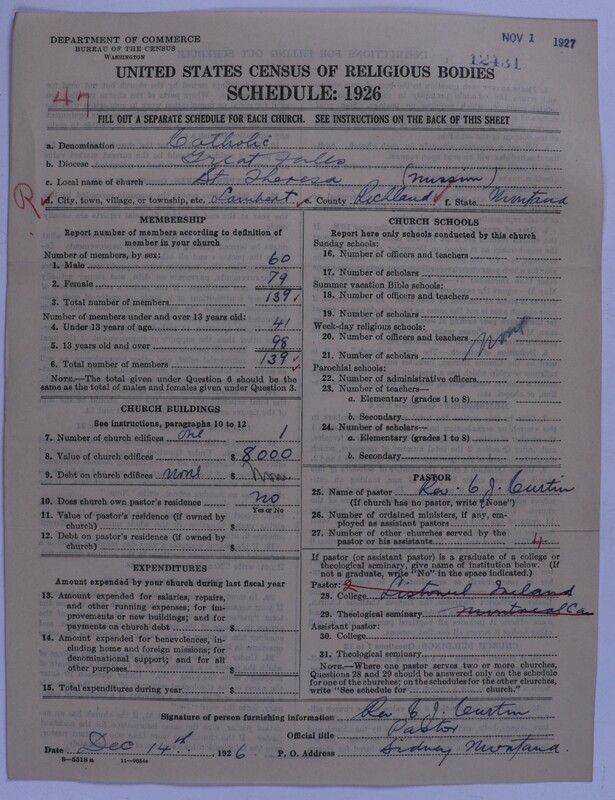 DEPARTMENT OF COMMERCE
BUREAU OF THE CENSUS
WASHINGTON
NOV 1 1927
12431
UNITED STATES CENSUS OF RELIGIOUS BODIES
SCHEDULE: 1926
47
FILL OUT A SEPARATE SCHEDULE FOR EACH CHURCH. SEE INSTRUCTIONS ON THE BACK OF THIS SHEET
a. Denomination Catholic
b. Diocese Great Falls
c. Local name of church St Theresa (mission)
R
d. City, town, village, or township, etc. Lambert e. County Richland f. State Montana
MEMBERSHIP
Report number of members according to definition of
member in your church
Number of members, by sex:
1. Male 60
2. Female 79
3. Total number of members 139
Number of members under and over 13 years old:
4. Under 13 years of age 41
5. 13 years old and over 98
6. Total number of members 139
NOTE.—The total given under Question 6 should be
same as the total of males and females given under Question 3.
CHURCH BUILDINGS
See instructions, paragraphs 10 to 12
7. Number of church edifices one 1
8. Value of church edifices $ 8000
9. Debt on church edifices none $ None
10. Does church own pastor's residence no
Yes or No
11. Value of pastor's residence (if owned by
church) $
12. Debt on pastor's residence (if owned by
church) $
EXPENDITURES
Amount expended by your church during last fiscal year
13. Amount expended for salaries, repairs,
and other running expenses; for im-
provements or new buildings; and for
payments on church debt $
14. Amount expended for benevolences, in-
cluding home and foreign missions; for
denominational support; and for all
other purposes $
15. Total expenditures during year $
CHURCH SCHOOLS
Report here only schools conducted by this church
Sunday schools:
16. Number of officers and teachers
17. Number of scholars
Summer vacation Bible schools:
18. Number of officers and teachers
19. Number of scholars
Week-day religious schools:
20. Number of officers and teachers
21. Number of scholars None
Parochial schools:
22. Number of administrative officers
23. Number of teachers—
a. Elementary (grades 1 to 8)
b. Secondary
24. Number of scholars—
a. Elementary (grades 1 to 8)
b. Secondary
PASTOR
25. Name of pastor Rev. C J. Curtin
(If church has no pastor, write "None")
26. Number of ordained ministers, if any, em-
ployed as assistant pastors
27. Number of other churches served by the
pastor or his assistants 4
If pastor (or assistant pastor) is a graduate of a college or
theological seminary, give name of institution below. (If
not a graduate, write "No" in the space indicated.)
Pastor: 2
28. College Listowel Ireland
29. Theological seminary Montreal Can
Assistant pastor:
30. College
31. Theological seminary
NOTE.—Where one pastor serves two or more churches,
Questions 28 and 29 should be answered only on the schedule
for one of the churches; on the schedules for the other churches,
write "See schedule for church."
Signature of person furnishing information Rev C J. Curtin
Official title Pastor
Date Dec 14th, 1926 P. O. Address Sidney Montana.
8—5318 a